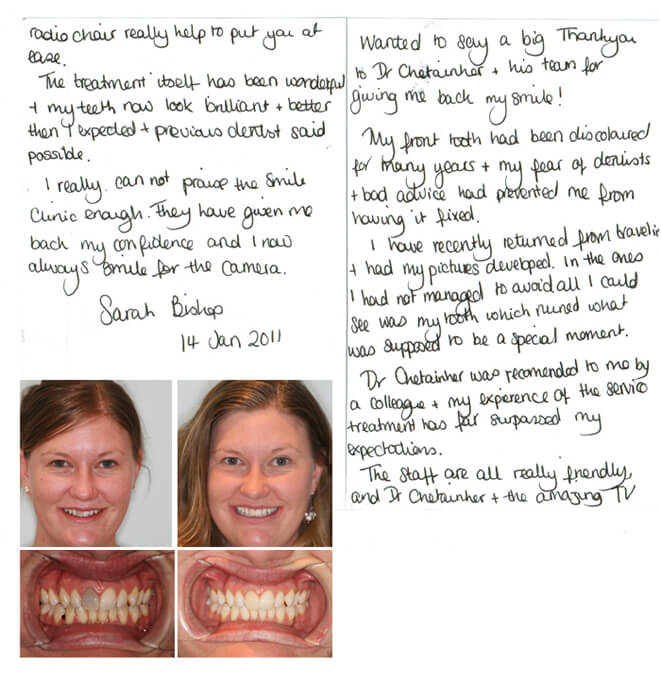 Wanted to say a big Thankyou
to Dr Chetainher + his team for
giving me back my smile!
My front tooth had been discoloured
for many years + my fear of dentists
+ bad advice had prevented me from
having it fixed.
I have recently returned from travelin
+ had my pictures developed. In the ones
I had not managed to avoid all I could
see was my tooth which ruined what
was supposed to be a special moment.
Dr Chetainher was recomended to me by
a colleague + my experence of the service
treatment has far surpassed my
expectations.
The staff are all really friendly,
and Dr Chetainher + the amazing TV
radio chair really help to put you at
ease.
The treatment itself has been wonderful
+ my teeth now look brilliant + better
then I expected + previous dentist said
possible.
I really can not praise the Smile
Clinic enough. They have given me
back my confidence and I now
always smile for the camera.
Sarah Bishop
14 Jan 2011